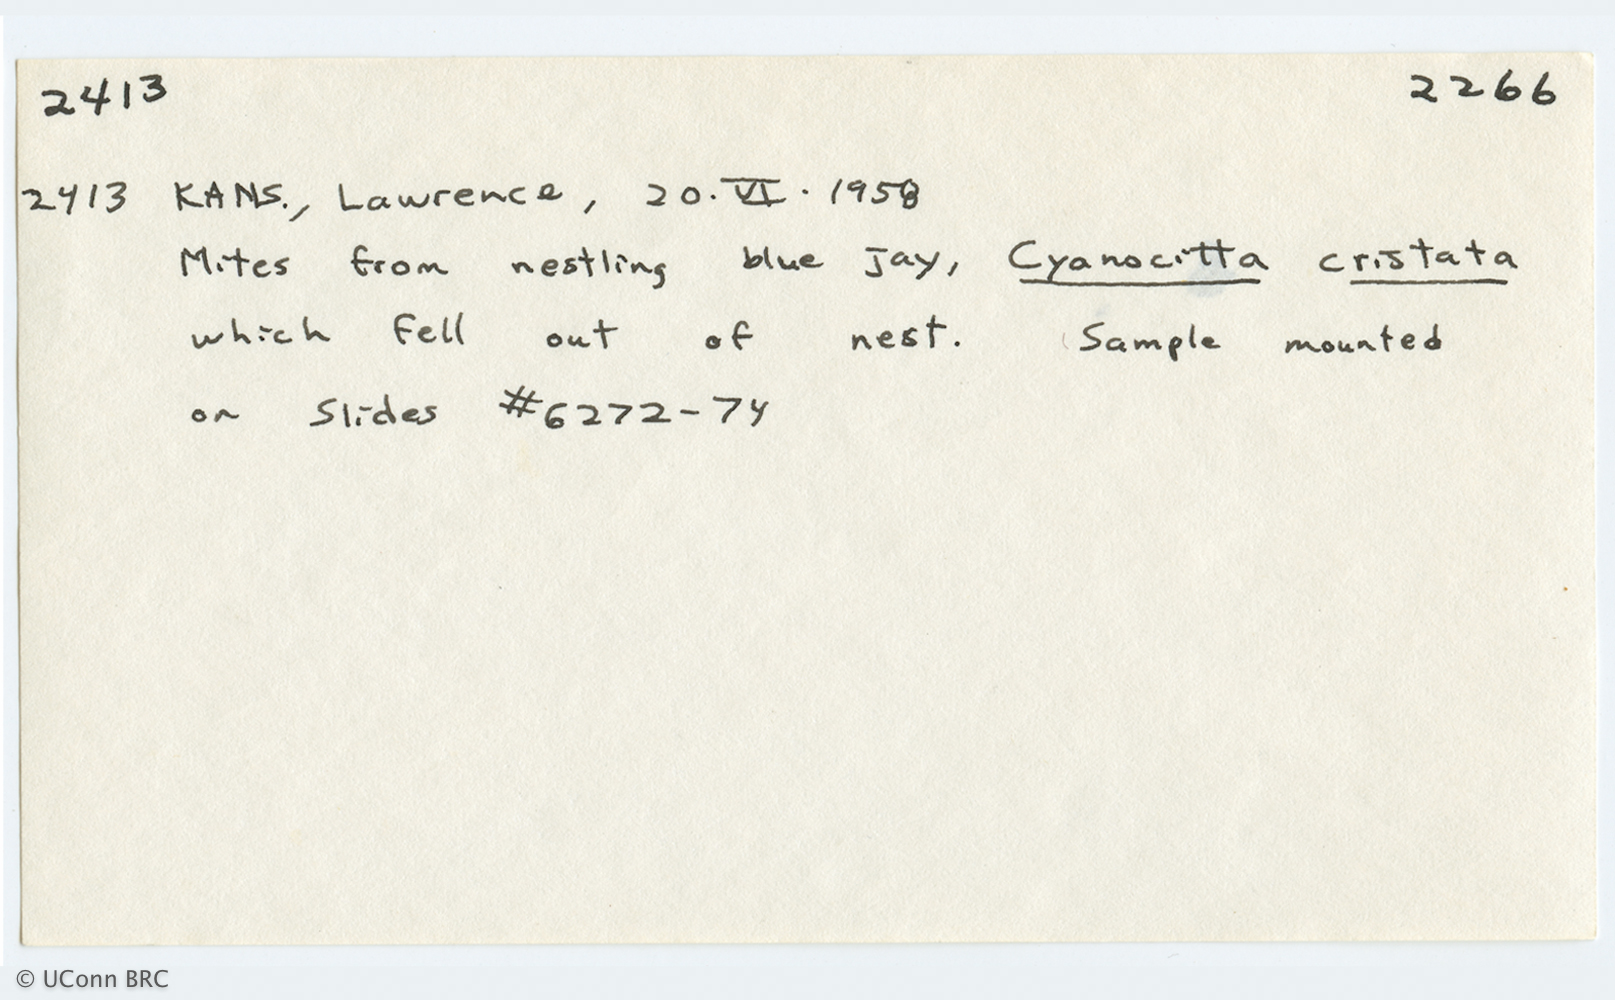 2413 2266
2413 KANS., Lawrence, 20.VI.1958
Mites from nestling blue jay, Cyanocitta cristata
which fell out of nest. Sample mounted
on Slides #6272-74
© UConn BRC